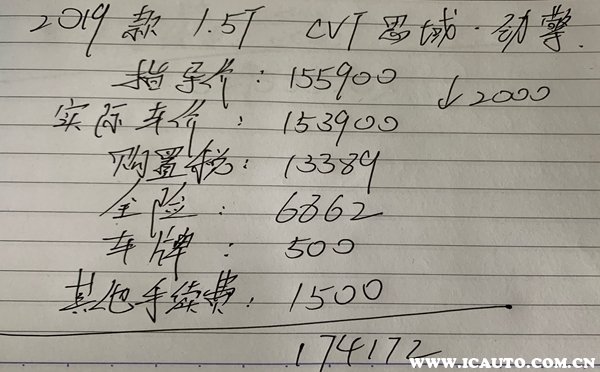 2019款 1.5T CVT思域·劲擎.
指导价：155900 ↓2000
实际车价：153900
购置税：13389
全险：6862
车牌：500
其他手续费：1500
174172
WWW.ICAUTO.COM.CN